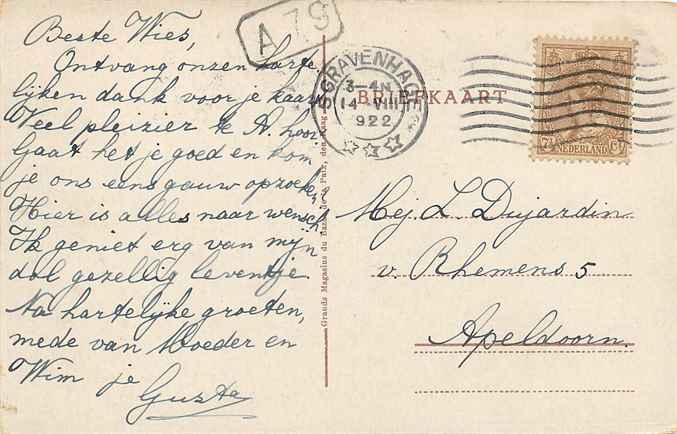 Beste Wies,
Ontvang onzen harte
lijken dank voor je kaart
Veel pleizier te A. hoor
Gaat het je goed en kom
je ons eens gauw opzoeken
Hier is alles naar wensch
Ik geniet erg van mijn
dol gezellig leventje
Na hartelijke groeten,
mede van Moeder en
Wim je
Guste
A 79
'S GRAVENHAGE
3-4 N
14 VIII
1922
BRIEFKAART
NEDERLAND
Grands Magasins du Bazar de la Paix, den Haag
Mej. L. Dujardin
v. Rhemens 5
Apeldoorn